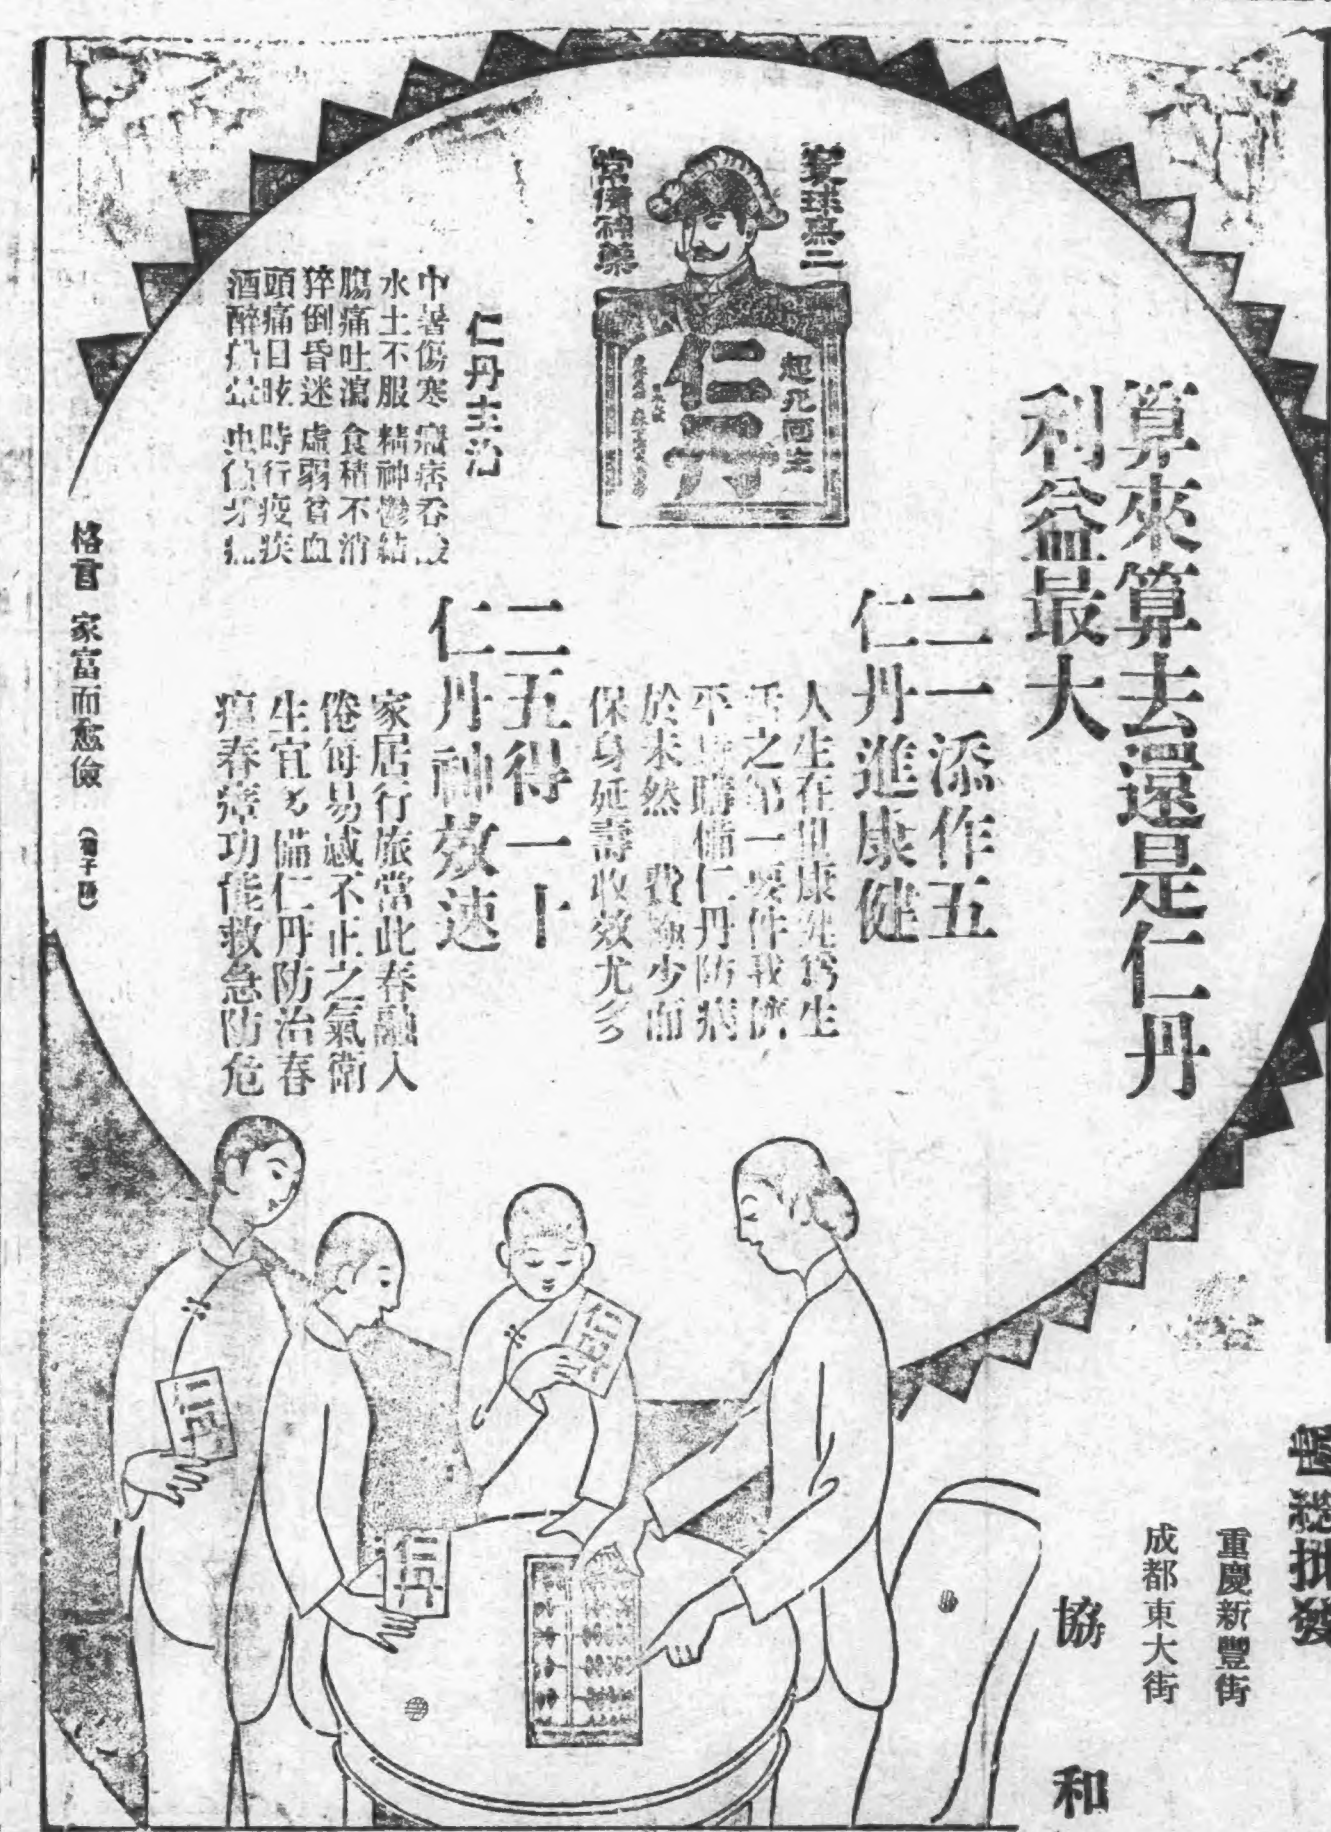 算來算去還是仁丹
利益最大
寰球無二
常備神藥
起死回生
仁丹
二一添作五
仁丹進康健
人生在世康健爲生
活之第一要件我儕
平時購備仁丹防病
於未然 費極少而
保身延壽收效尤多
二五得一十
仁丹神效速
家居行旅當此春融人
倦每易感不正之氣衛
生宜多備仁丹防治春
瘟春痧功能救急防危
仁丹主治
中暑傷寒 痞吞酸
水土不服 精神鬱結
腸痛吐瀉 食積不消
猝倒昏迷 虛弱貧血
頭痛目眩 時行疫疾
酒醉船暈 虫傷牙痛
格言 家富而愈儉
仁丹
仁丹
仁丹
總批發
重慶新豐街
成都東大街
協和